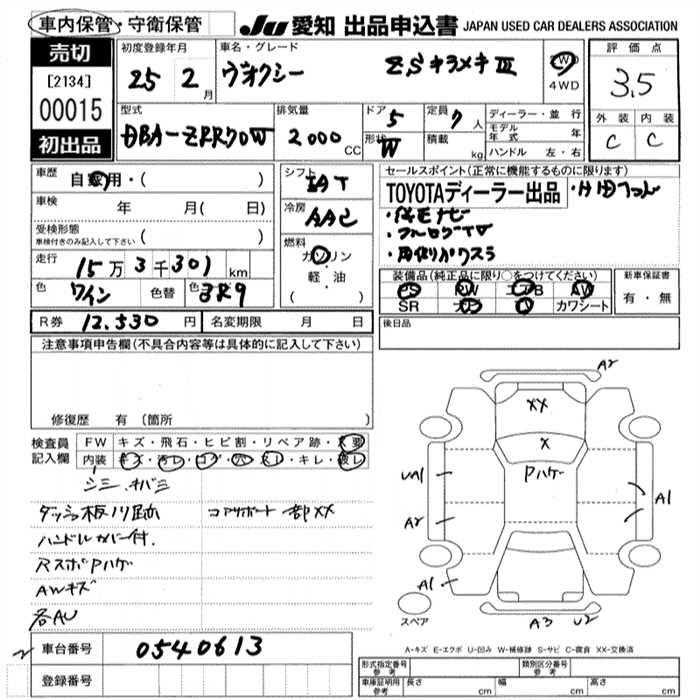 車内保管・守衛保管
JU 愛知 出品申込書 JAPAN USED CAR DEALERS ASSOCIATION
売切
[2134]
00015
初出品
初度登録年月
25 2月
車名・グレード
ヴォクシー ZSキラメキIII
4WD
評価点
3.5
外装 内装
C C
型式
DBA-ZRR70W
排気量
2000 CC
ドア 5
形状 W
定員 7人
積載 kg
ディーラー・並行
モデル年式 年
ハンドル 左・右
車歴 自家用・( )
車検 年 月( 日)
受検形態
車検付きのみ記入して下さい ( )
走行 15万3千301km
色 ワイン 色替 3R9
R券 12.530円 名変期限 月 日
シフト IAT
冷房 AAC
燃料
ガソリン
軽・油
( )
セールスポイント(正常に機能するものに限ります)
TOYOTAディーラー出品
・純正ナビ
・フルセグTV
装備品(純正品に限り○をつけてください)
PS PW エアB AW
SR カワシート
新車保証書
有・無
後日品
注意事項申告欄(不具合内容等は具体的に記入して下さい)
修復歴 有 (箇所 )
検査員記入欄
FW キズ・飛石・ヒビ割・リペア跡・X要
内装 キズ・汚レ・コゲ・穴・スレ・キレ・破レ
シミ キバミ
ダッシュ板ハリ跡 コアサポート一部XX
ハンドルカバー付.
RスポPハゲ
AWキズ
各AU
2
車台番号 0540613
登録番号
A2
XX
X
Pハゲ
UA1
A2
A1
A1
A3 U2
スペア
A-キズ E-エクボ U-凹み W-補修跡 S-サビ C-腐食 XX-交換済
形式指定番号 参考
類別区分番号 参考
車庫証明用 参考 長さ cm 幅 cm 高さ cm